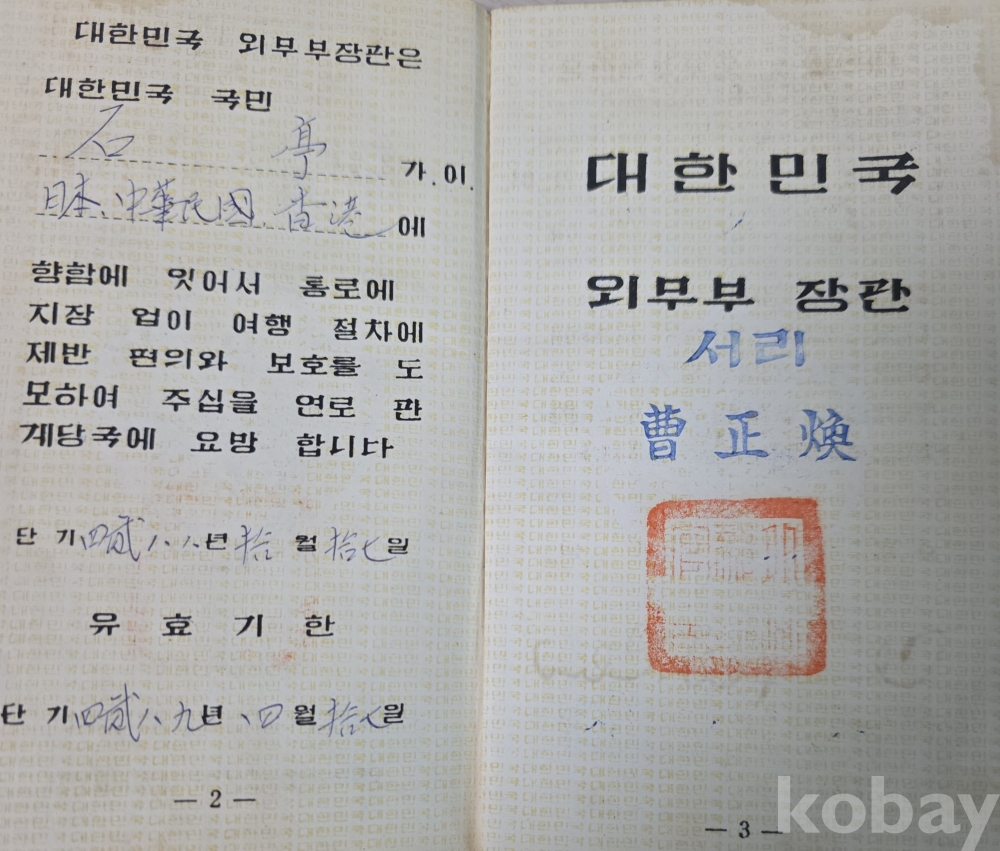 대한민국 외무부장관은
대한민국 국민
石 亭 가.이.
日本、中華民國、香港 에
향함에 잇어서 통로에
지장 업이 여행 절차에
제반 편의와 보호를 도
모하여 주심을 연로 관
계당국에 요방 합니다
단기四貳八八년 拾 월拾七일
유효기한
단기四貳八九년 四월拾七일
— 2 —
대한민국
외무부 장관
서리
曹正煥
— 3 —
kobay